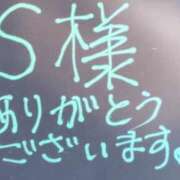 S様
ありがとう
ございます。